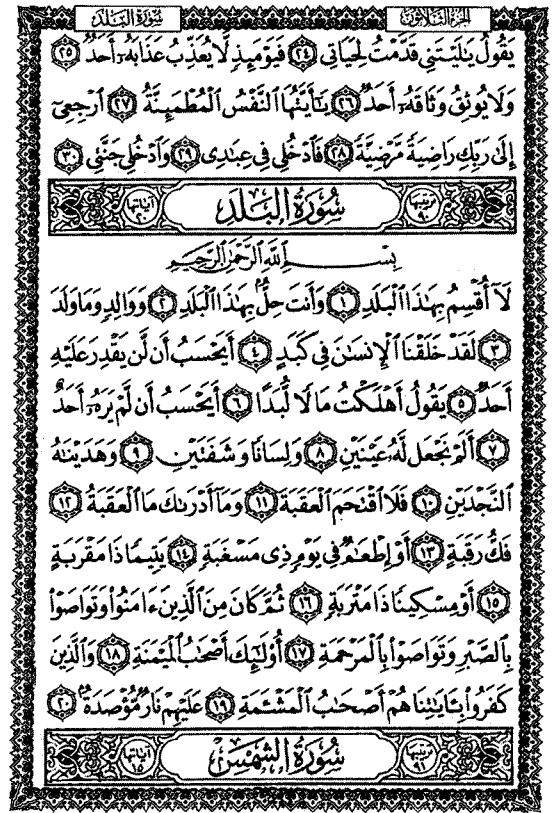 الجُزءُ الثَّلاثُونَ سُورَةُ البَلَد
يَقُولُ يَٰلَيْتَنِى قَدَّمْتُ لِحَيَاتِى ٢٤ فَيَوْمَئِذٍ لَّا يُعَذِّبُ عَذَابَهُۥٓ أَحَدٌ ٢٥
وَلَا يُوثِقُ وَثَاقَهُۥٓ أَحَدٌ ٢٦ يَٰٓأَيَّتُهَا ٱلنَّفْسُ ٱلْمُطْمَئِنَّةُ ٢٧ ٱرْجِعِىٓ
إِلَىٰ رَبِّكِ رَاضِيَةً مَّرْضِيَّةً ٢٨ فَٱدْخُلِى فِى عِبَٰدِى ٢٩ وَٱدْخُلِى جَنَّتِى ٣٠
ترتيبها ٩٠ سُورَةُ البَلَدِ آياتها ٢٠
بِسْمِ ٱللَّهِ ٱلرَّحْمَٰنِ ٱلرَّحِيمِ
لَآ أُقْسِمُ بِهَٰذَا ٱلْبَلَدِ ١ وَأَنتَ حِلٌّۢ بِهَٰذَا ٱلْبَلَدِ ٢ وَوَالِدٍ وَمَا وَلَدَ
٣ لَقَدْ خَلَقْنَا ٱلْإِنسَٰنَ فِى كَبَدٍ ٤ أَيَحْسَبُ أَن لَّن يَقْدِرَ عَلَيْهِ
أَحَدٌ ٥ يَقُولُ أَهْلَكْتُ مَالًا لُّبَدًا ٦ أَيَحْسَبُ أَن لَّمْ يَرَهُۥٓ أَحَدٌ
٧ أَلَمْ نَجْعَل لَّهُۥ عَيْنَيْنِ ٨ وَلِسَانًا وَشَفَتَيْنِ ٩ وَهَدَيْنَٰهُ
ٱلنَّجْدَيْنِ ١٠ فَلَا ٱقْتَحَمَ ٱلْعَقَبَةَ ١١ وَمَآ أَدْرَىٰكَ مَا ٱلْعَقَبَةُ ١٢
فَكُّ رَقَبَةٍ ١٣ أَوْ إِطْعَٰمٌ فِى يَوْمٍ ذِى مَسْغَبَةٍ ١٤ يَتِيمًا ذَا مَقْرَبَةٍ
١٥ أَوْ مِسْكِينًا ذَا مَتْرَبَةٍ ١٦ ثُمَّ كَانَ مِنَ ٱلَّذِينَ ءَامَنُوا۟ وَتَوَاصَوْا۟
بِٱلصَّبْرِ وَتَوَاصَوْا۟ بِٱلْمَرْحَمَةِ ١٧ أُو۟لَٰٓئِكَ أَصْحَٰبُ ٱلْمَيْمَنَةِ ١٨ وَٱلَّذِينَ
كَفَرُوا۟ بِـَٔايَٰتِنَا هُمْ أَصْحَٰبُ ٱلْمَشْـَٔمَةِ ١٩ عَلَيْهِمْ نَارٌ مُّؤْصَدَةٌۢ ٢٠
ترتيبها ٩١ سُورَةُ الشَّمْسِ آياتها ١٥